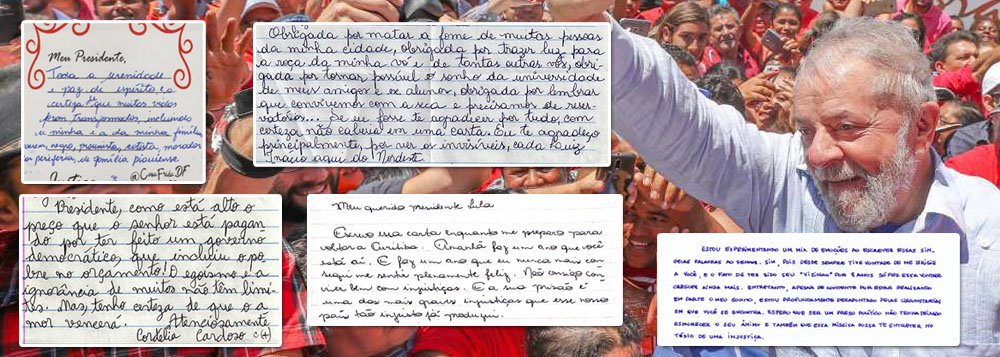 Meu Presidente,
Toda a serenidade
e paz de espírito e a
certeza de que muitas vidas
foram transformadas, incluindo
a minha e a da minha família
negro, prounista, artista, morador
da periferia, de família piauiense.
@CasaFridaDF
Obrigada por matar a fome de muitas pessoas
da minha cidade, obrigada por trazer luz para
a roça da minha vó e de tantas outras vós, obri-
gada por tornar possível o sonho da universidade
de meus amigos e ex alunos, obrigada por lembrar
que convivemos com a seca e precisamos de reser-
vatórios... Se eu fosse te agradecer por tudo, com
certeza não caberia em uma carta. Eu te agradeço
principalmente, por ver os invisíveis, cada Luiz
Inácio aqui do Nordeste.
Presidente, como está alto o
preço que o senhor está pagan
do por ter feito um governo
democrático, que incluiu o po
bre no orçamento! O egoísmo e a
ignorância de muitos não têm limi
tes. Mas, tenho certeza de que o a
mor vencerá. Atenciosamente
Cordélia Cardoso
Meu querido presidente Lula
Escrevo essa carta enquanto me preparo para
voltar a Curitiba. Amanhã faz um ano que você
está aí. E faz um ano que eu nunca mais con
segui me sentir plenamente feliz. Não consigo con
viver bem com injustiças. E a sua prisão é
uma das mais graves injustiças que esse nosso
país tão injusto já produziu.
ESTOU EXPERIMENTANDO UM MIL DE EMOÇÕES AO ESCREVER ESSAS SIM,
PALAVRAS AO SENHOR. SIM, POIS DESDE SEMPRE TIVE VONTADE DE ME DIRIGIR
A VOCÊ, E O FATO DE TER SIDO SEU "VIZINHO" POR 8 ANOS SÓ FEZ ESSA VONTADE
CRESCER AINDA MAIS. ENTRETANTO, APESAR DE CONTENTE POR ESTAR REALIZANDO
EM PARTE O MEU SONHO, ESTOU PROFUNDAMENTE DESAPONTADO PELAS CIRCUNSTÂNCIAS
EM QUE VOCÊ SE ENCONTRA. ESPERO QUE SER UM PRESO POLÍTICO NÃO TENHA DEIXADO
ESMORECER O SEU ÂNIMO E TAMBÉM QUE ESSA MISSIVA POSSA TE ENTRETER NO
TÉDIO DE UMA INJUSTIÇA.